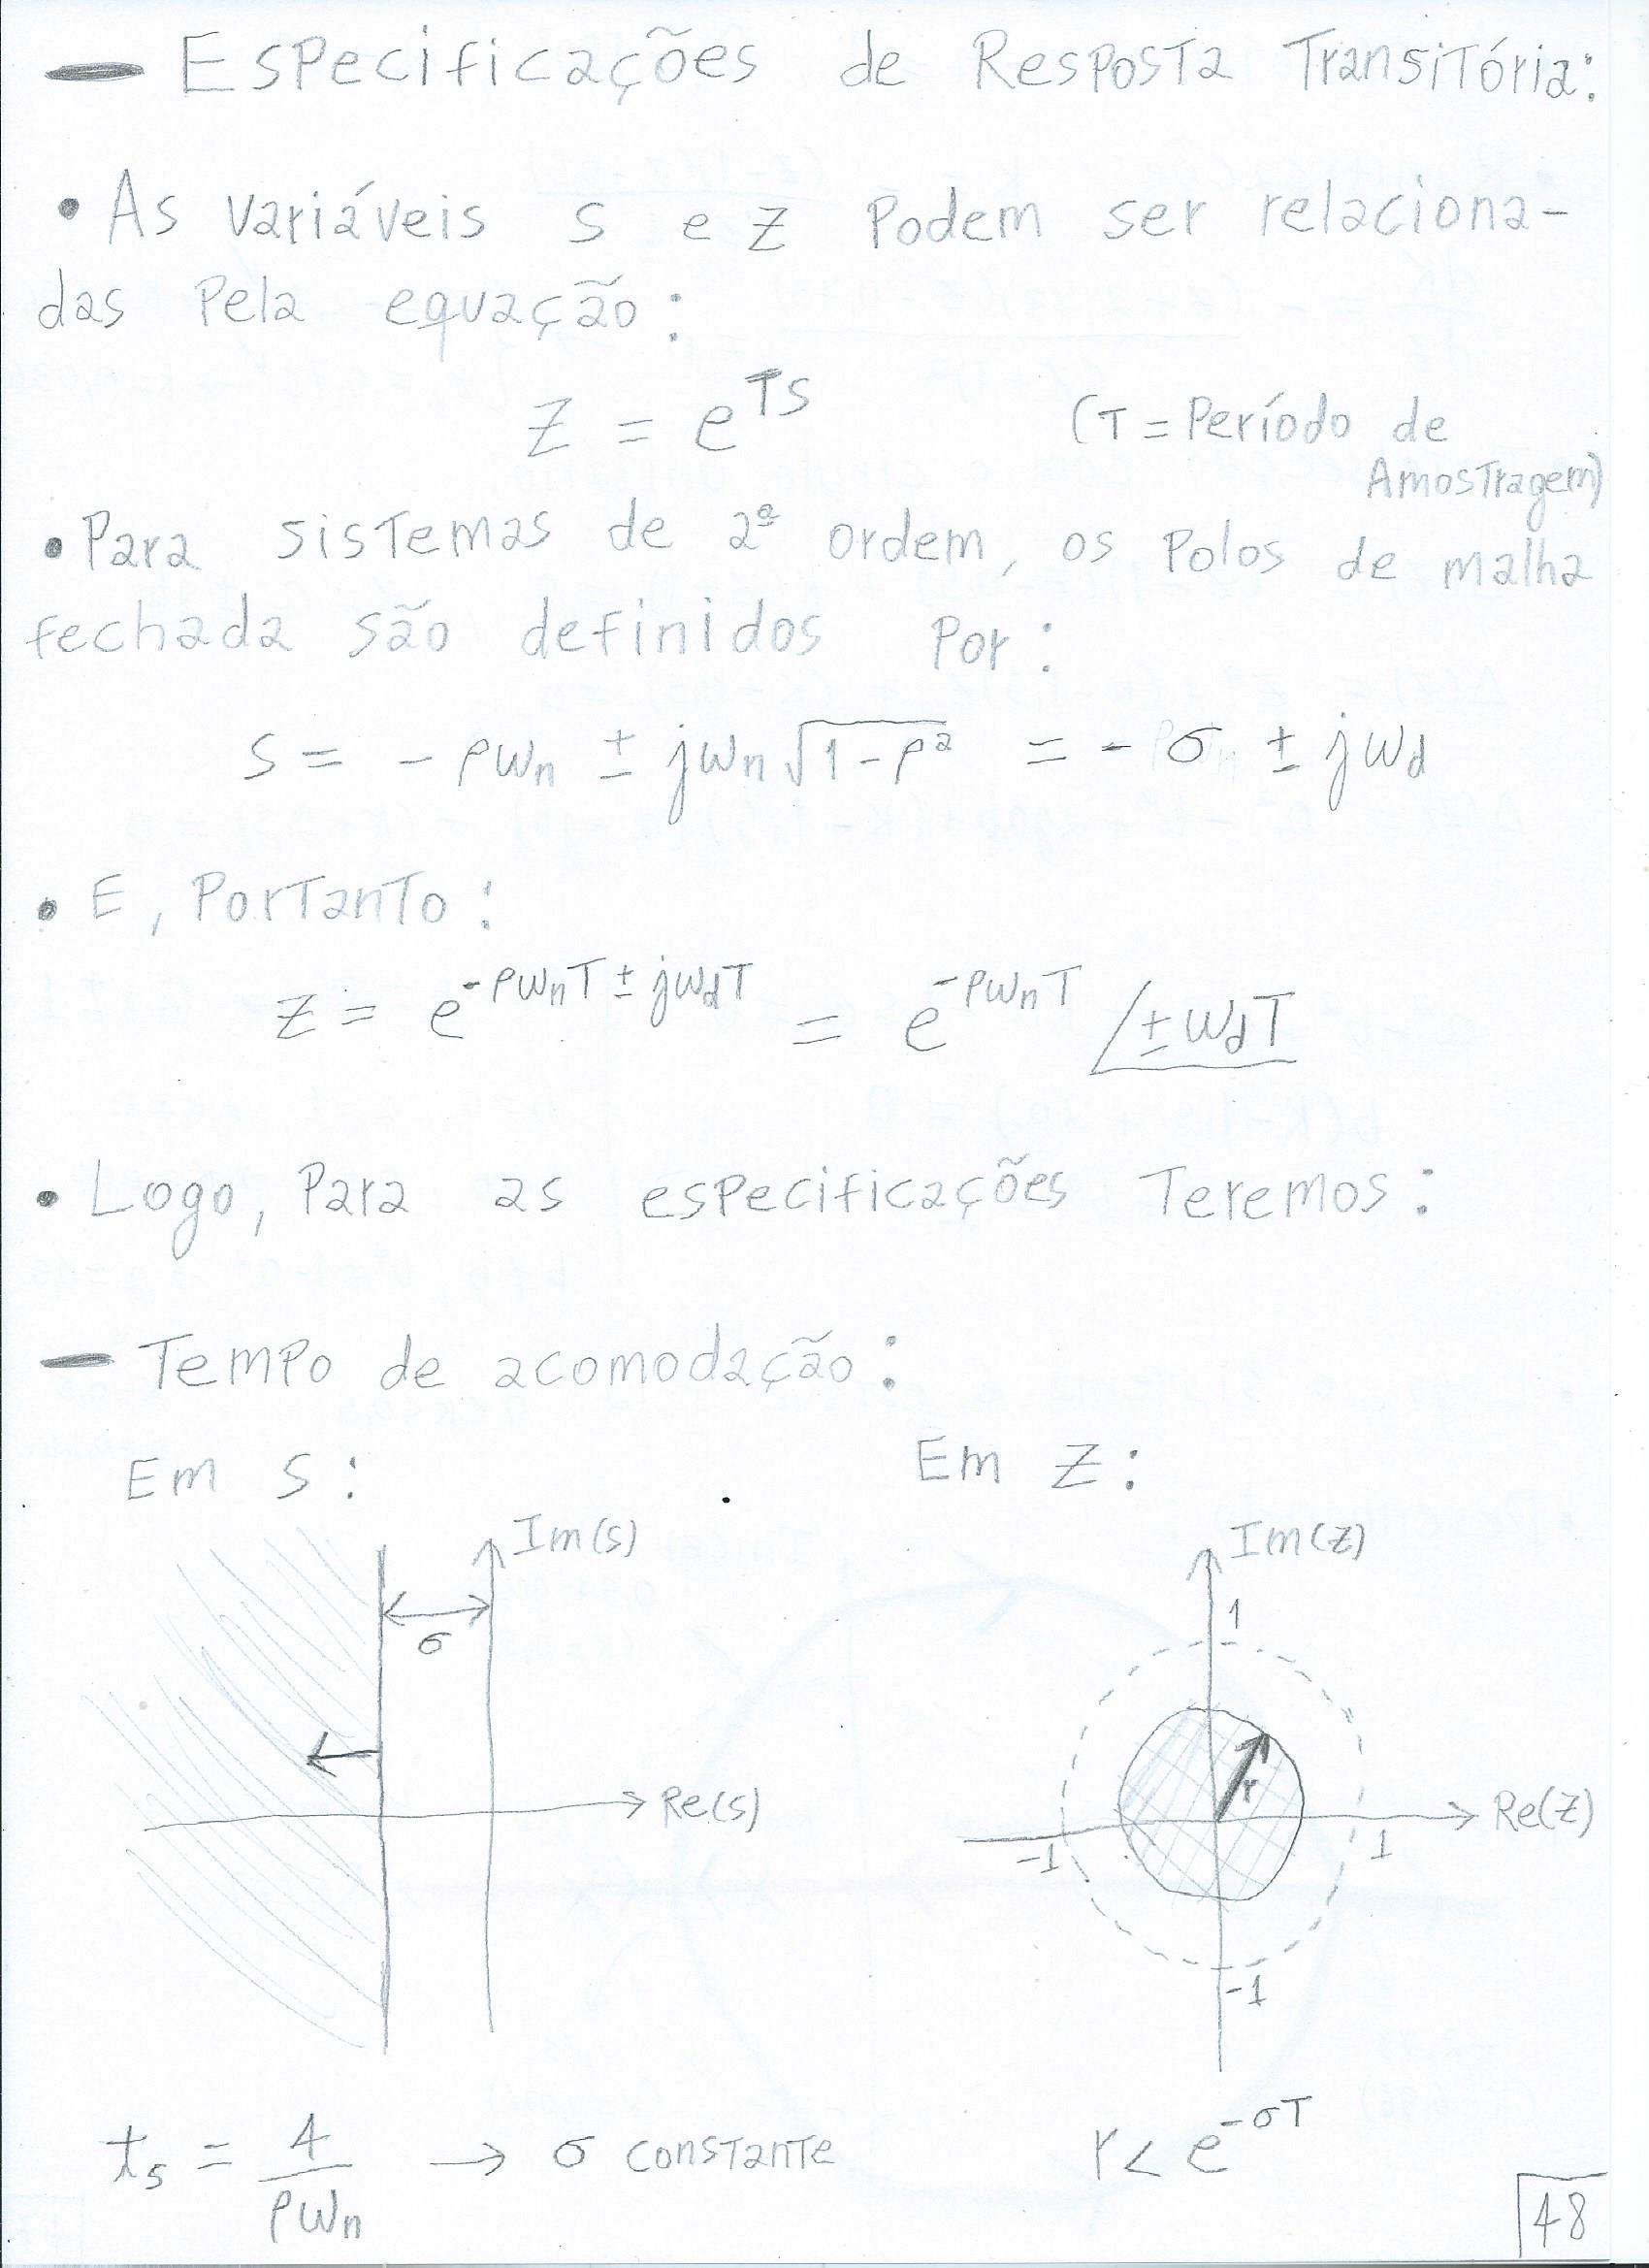 — Especificações de Resposta Transitória:
• As variáveis s e z podem ser relaciona-
das pela equação:
z = e^{Ts} (T = Período de
Amostragem)
• Para sistemas de 2ª ordem, os polos de malha
fechada são definidos por:
s = - ρωn ± jωn√(1-ρ²) = - σ ± jωd
• E, portanto:
z = e^{-ρωnT ± jωdT} = e^{-ρωnT} ∠±ωdT
• Logo, para as especificações teremos:
— Tempo de acomodação:
Em s: Em z:
Im(s) Im(z)
1
σ
r
Re(s) Re(z)
-1 1
-1
ts = 4/ρωn → σ constante r < e^{-σT}
48